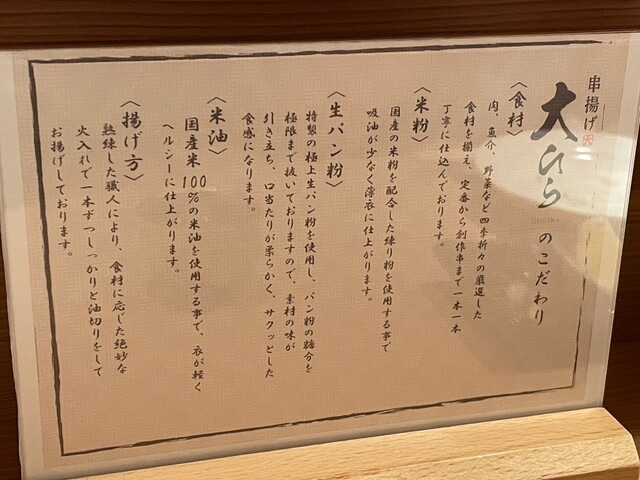 串揚げ
大ひら のこだわり
〈食材〉
肉、魚介、野菜など四季折々の厳選した
食材を揃え、定番から創作串まで一本一本
丁寧に仕込んでおります。
〈米粉〉
国産の米粉を配合した練り粉を使用する事で
吸油が少なく薄衣に仕上がります。
〈生パン粉〉
特製の極上生パン粉を使用し、パン粉の糖分を
極限まで抜いておりますので、素材の味が
引き立ち、口当たりが柔らかく、サクッとした
食感になります。
〈米油〉
国産米100%の米油を使用する事で、衣が軽く
ヘルシーに仕上がります。
〈揚げ方〉
熟練した職人により、食材に応じた絶妙な
火入れで一本ずつしっかりと油切りをして
お揚げしております。